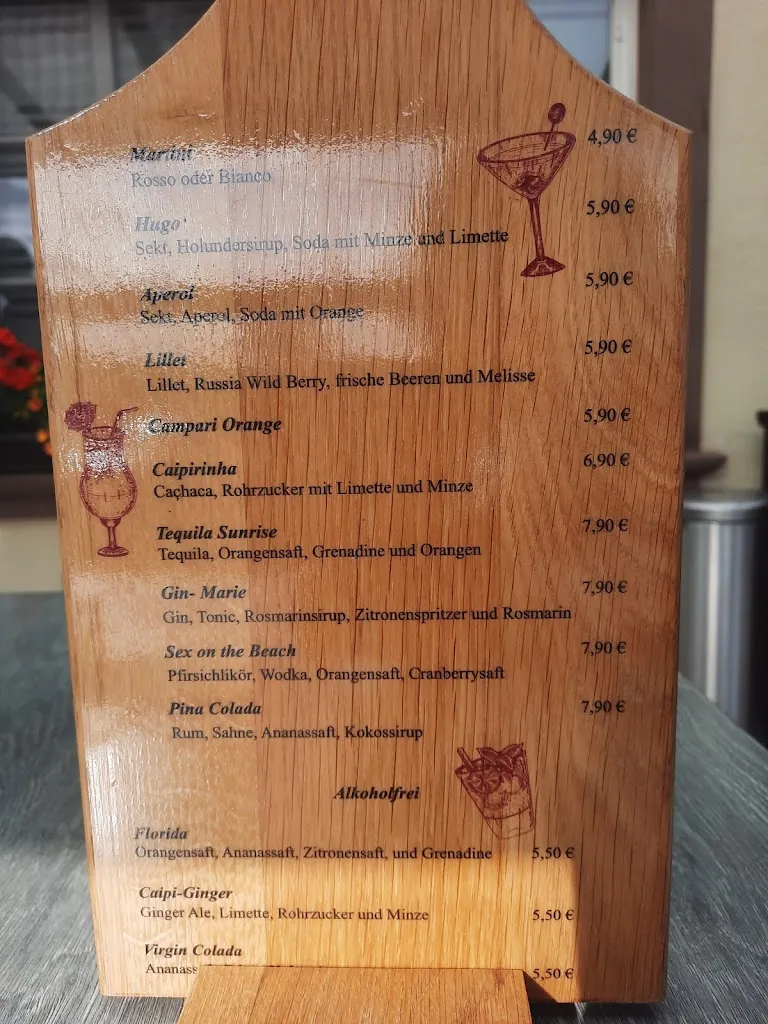 Martini 4,90 €
Rosso oder Bianco
Hugo 5,90 €
Sekt, Holundersirup, Soda mit Minze und Limette
Aperol 5,90 €
Sekt, Aperol, Soda mit Orange
Lillet 5,90 €
Lillet, Russia Wild Berry, frische Beeren und Melisse
Campari Orange 5,90 €
Caipirinha 6,90 €
Caçhaca, Rohrzucker mit Limette und Minze
Tequila Sunrise 7,90 €
Tequila, Orangensaft, Grenadine und Orangen
Gin- Marie 7,90 €
Gin, Tonic, Rosmarinsirup, Zitronenspritzer und Rosmarin
Sex on the Beach 7,90 €
Pfirsichlikör, Wodka, Orangensaft, Cranberrysaft
Pina Colada 7,90 €
Rum, Sahne, Ananassaft, Kokossirup
Alkoholfrei
Florida
Orangensaft, Ananassaft, Zitronensaft, und Grenadine 5,50 €
Caipi-Ginger
Ginger Ale, Limette, Rohrzucker und Minze 5,50 €
Virgin Colada
Ananass 5,50 €